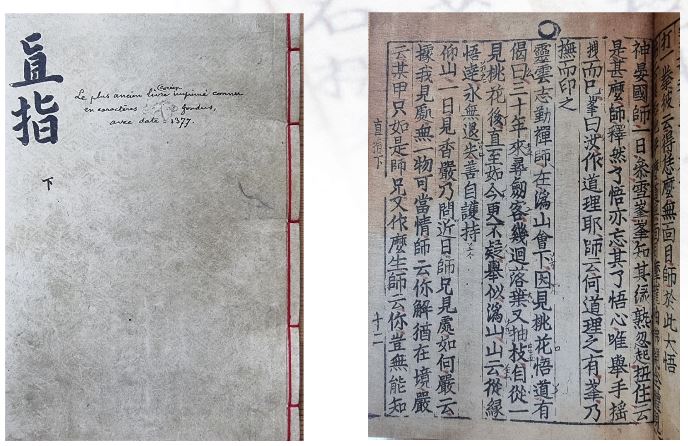 直指
下
Le plus ancien livre coréen imprimé connu
en caractères fondus,
avec date = 1377.
彼云得恁麼無面目師於此大悟
神晏國師一日叅雪峯峯知其緣熟忽起搊住云
是甚麼師釋然了悟亦忘其了悟心唯舉手搖
拽而已峯曰汝作道理耶師云何道理之有峯乃
撫而印之
靈雲志勤禪師在潙山會下因見桃花悟道有
偈曰三十年來尋劒客幾迴落葉又抽枝自從一
見桃花後直至如今更不疑舉似潙山山云從緣
悟達永無退失善自護持
仰山一日見香嚴乃問近日師兄見處如何嚴云
據我見處無一物可當情師云你解猶在境嚴
云某甲只如是師兄又作麼生師云你豈無能知
直指下 十二